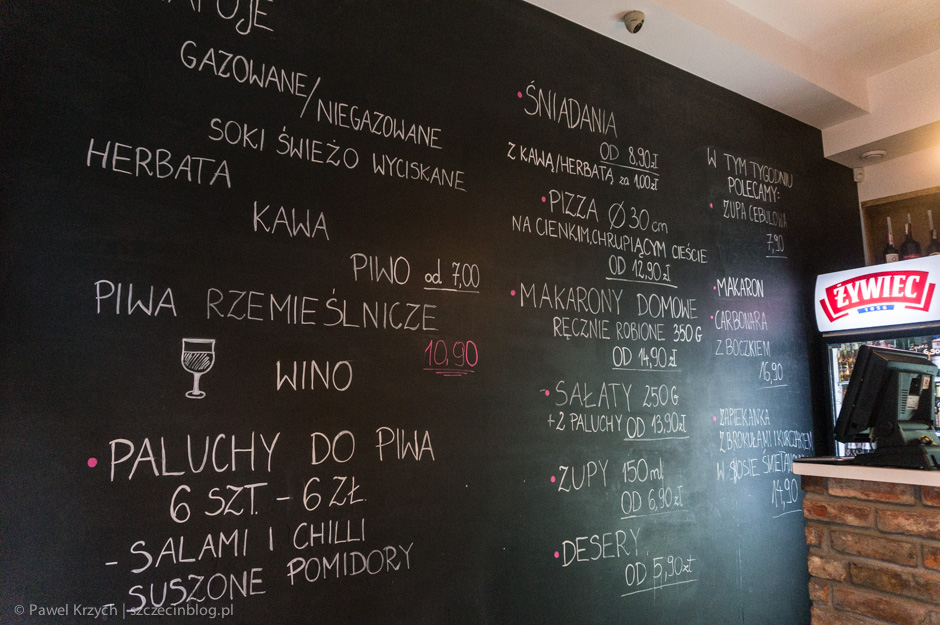 GAZOWANE/NIEGAZOWANE
SOKI ŚWIEŻO WYCISKANE
HERBATA
KAWA
PIWO od 7,00
PIWA RZEMIEŚLNICZE
10,90
WINO
• PALUCHY DO PIWA
6 SZT. - 6 ZŁ.
- SALAMI I CHILLI
- SUSZONE POMIDORY
• ŚNIADANIA
OD 8.90zł
Z KAWĄ/HERBATĄ za 1,00zł
• PIZZA Ø 30 cm
NA CIENKIM, CHRUPIĄCYM CIEŚCIE
OD 12,90 zł
• MAKARONY DOMOWE
RĘCZNIE ROBIONE 350 G
OD 14,90 zł
• SAŁATY 250 G
+ 2 PALUCHY OD 13,90zł
• ZUPY 150ml
OD 6,90zł
• DESERY
OD 5,90zł
W TYM TYGODNIU
POLECAMY:
• ZUPA CEBULOWA
7,90
• MAKARON
• CARBONARA
Z BOCZKIEM
16,90
• ZAPIEKANKA
Z BROKUŁAMI I KURCZAKIEM
W SOSIE
14,90
ŻYWIEC
1856
© Pawel Krzych | szczecinblog.pl